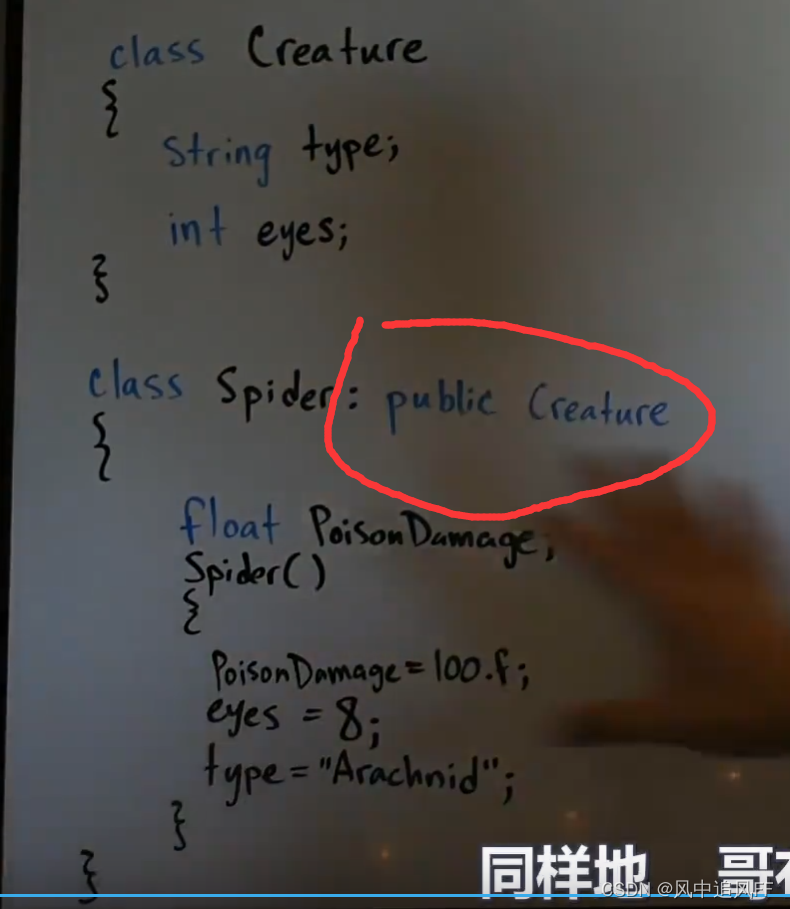 class Creature
{
String type;
int eyes;
}
class Spider: public Creature
{
float PoisonDamage;
Spider()
{
PoisonDamage=100.f;
eyes = 8;
type="Arachnid";
}
}
同样地 哥布
CSDN @风中追风吖